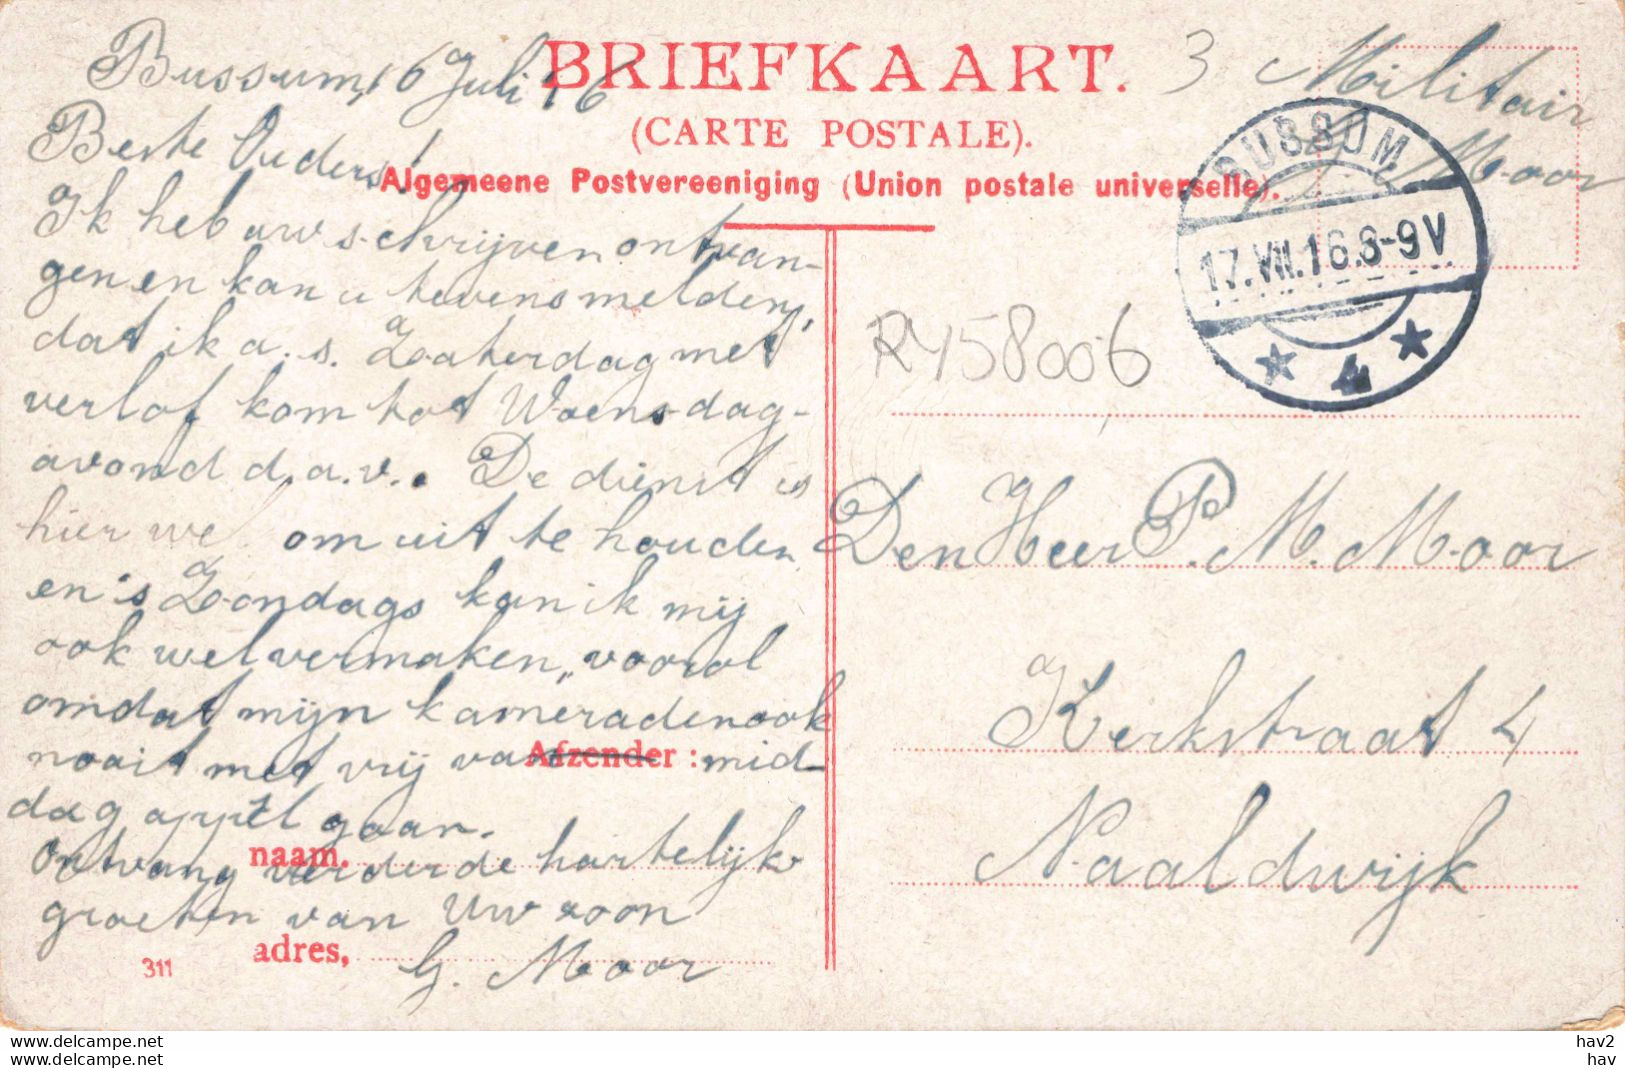 BRIEFKAART.
(CARTE POSTALE).
Algemeene Postvereeniging (Union postale universelle).
Bussum, 16 Juli '16
Beste Ouders!
Ik heb uw schrijven ontvan-
gen en kan u tevens melden,
dat ik a.s. Zaterdag met
verlof kom tot Woensdag-
avond d.a.v.. De dienst is
hier wel om uit te houden
en 's Zondags kan ik mij
ook wel vermaken, vooral
omdat mijn kameraden ook
nooit met vrij van mid-
dag appèl gaan.
Ontvang verder de hartelijke
groeten van Uw zoon
G. Moor
Afzender:
naam.
adres,
311
3 Militair
Moor
BUSSUM
17.VII.16.8-9V
4
RY58006
Den Heer P. M. Moor
Kerkstraat 4
Naaldwijk
hav2
hav